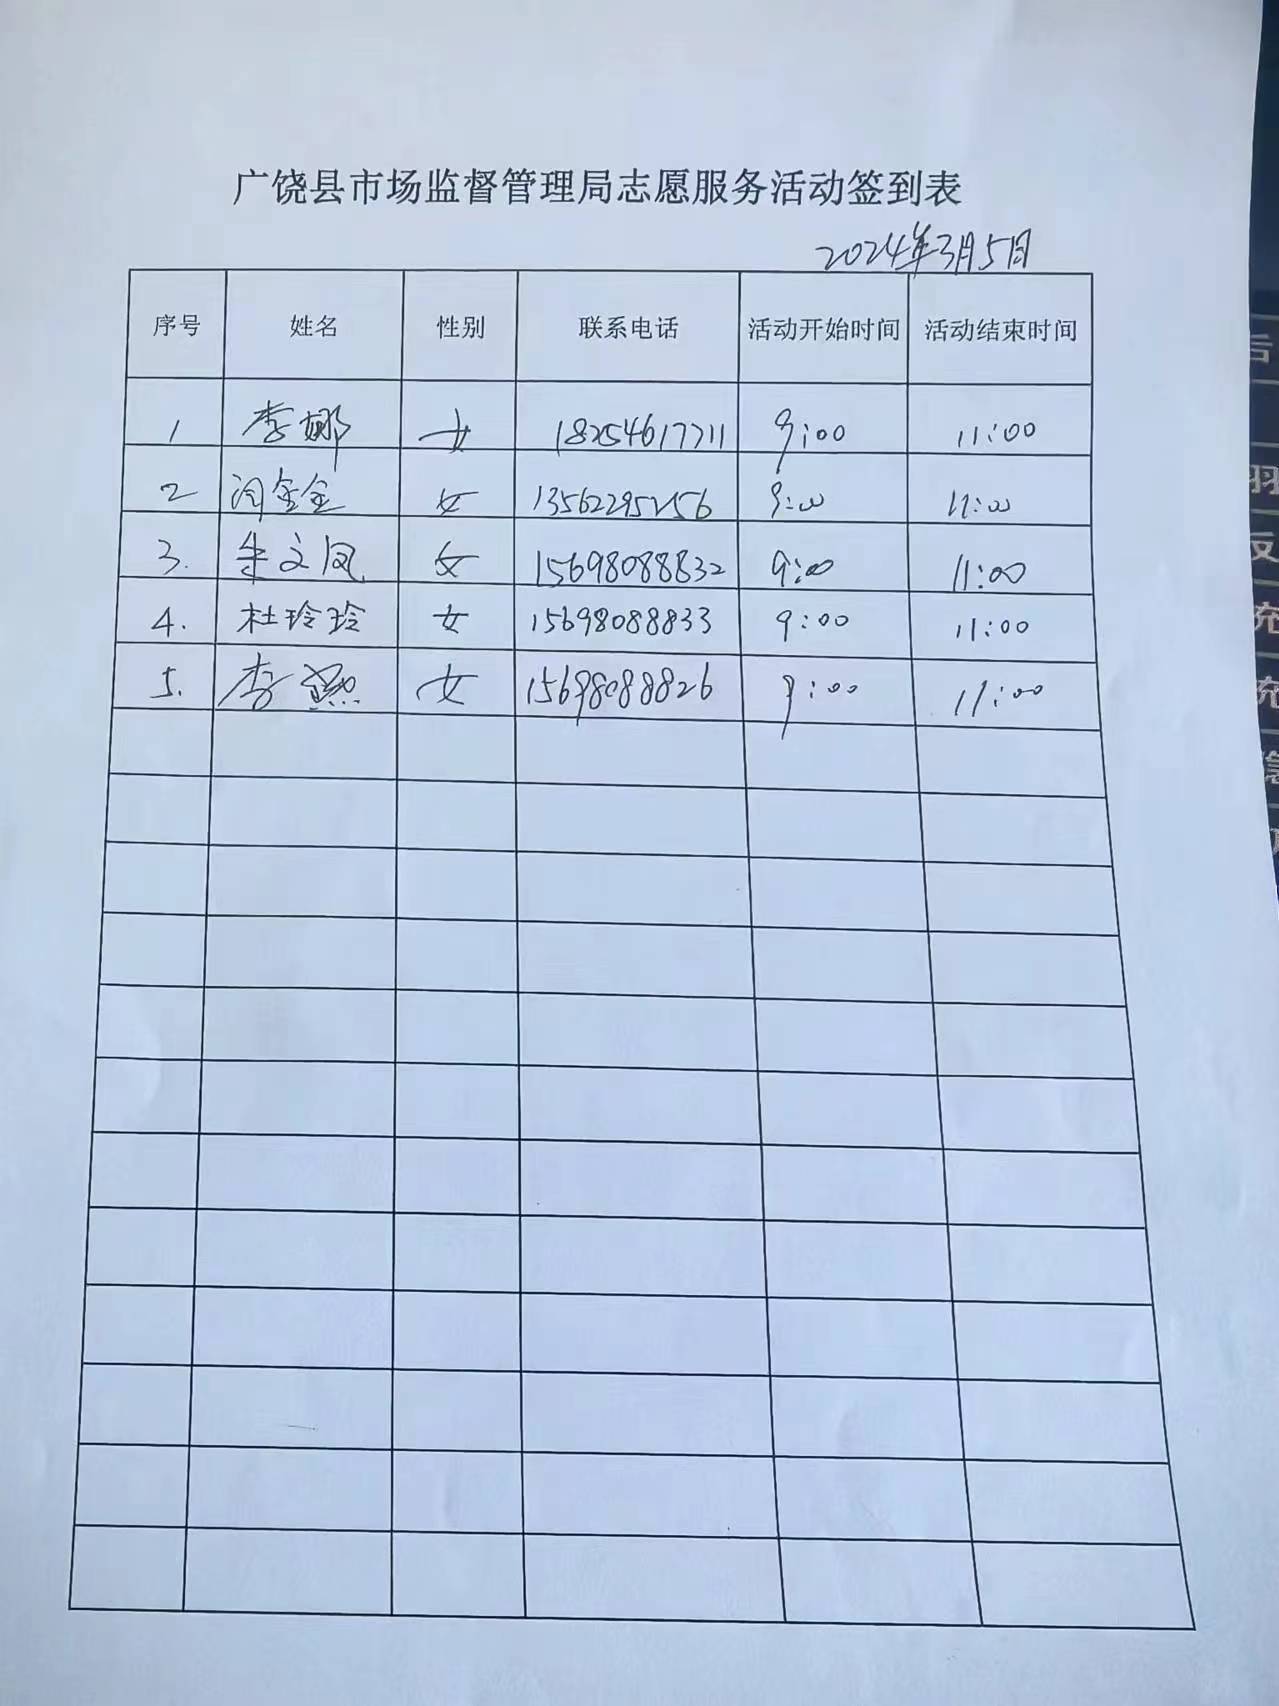 广饶县市场监督管理局志愿服务活动签到表
2024年3月5日
序号 姓名 性别 联系电话 活动开始时间 活动结束时间
1 李娜 女 18254617711 9:00 11:00
2 闫金金 女 13562295256 9:00 11:00
3. 朱文凤 女 15698088832 9:00 11:00
4. 杜玲玲 女 15698088833 9:00 11:00
5. 李 女 15698088826 9:00 11:00
后
羽
反
充
充